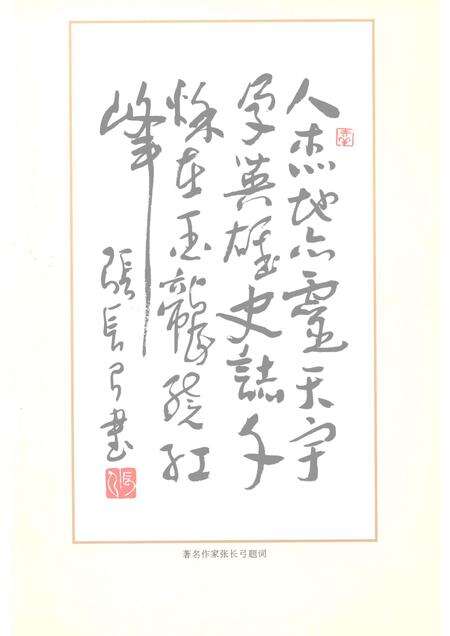 人杰地亦靈天宇
孕英雄史誌千
秋在玉龍繞紅
峰
張長弓書
著名作家张长弓题词